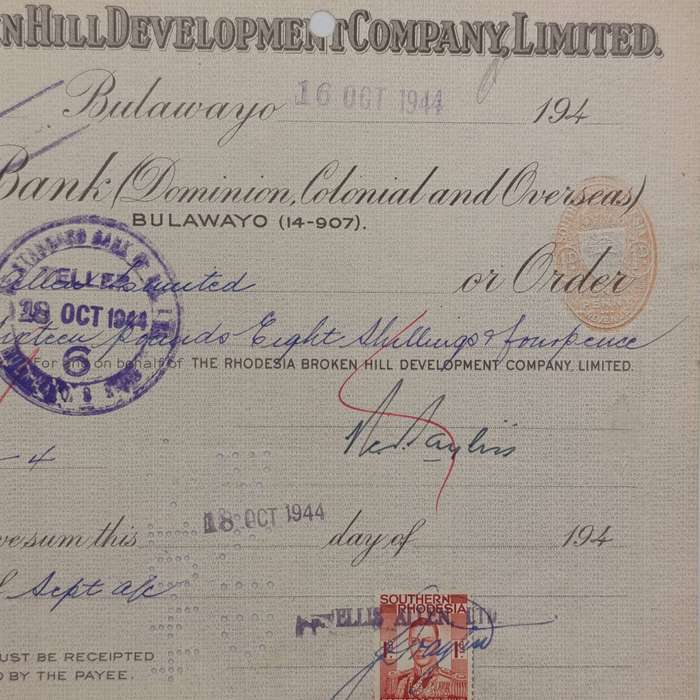 EN HILL DEVELOPMENT COMPANY, LIMITED.
Bulawayo 16 OCT 1944 194
Bank (Dominion, Colonial and Overseas)
BULAWAYO (14-907).
STANDARD BANK OF
TELLER
18 OCT 1944
6
Limited or Order
Pounds Eight Shillings & fourpence
For and on behalf of THE RHODESIA BROKEN HILL DEVELOPMENT COMPANY. LIMITED.
- 4
ve sum this 18 OCT 1944 day of 194
Sept a/c
SOUTHERN
RHODESIA
ELLIS ALLEN, LTD
1D 1D
UST BE RECEIPTED
D BY THE PAYEE.